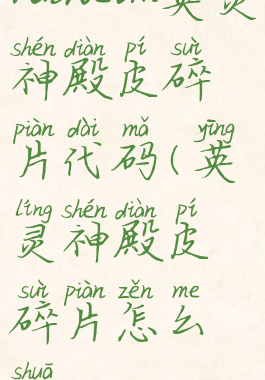 英灵
shén diàn pí suì
神殿皮碎
piàn dài mǎ yīng
片代码(英
líng shén diàn pí
灵神殿皮
suì piàn zěn me
碎片怎么
shuā